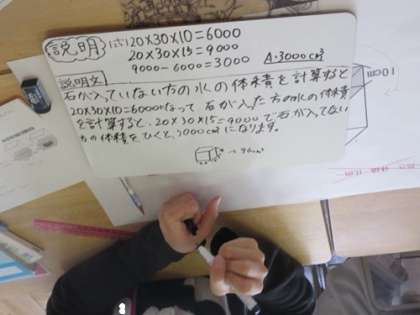 説明 (式) 20×30×10=6000
20×30×15=9000
9000-6000=3000 A.3000cm³
説明文
石が入っていない方の水の体積を計算すると
20×30×10=6000になって、石が入った方の水の体積
を計算すると、20×30×15=9000で石が入ってない
方の体積をひくと、3000cm³になります。
100m